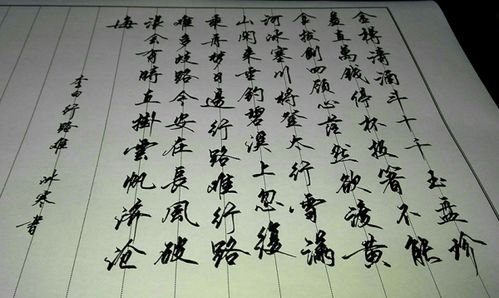 金樽清酒斗十千玉盘珍
羞直萬錢停杯投箸不能
食拔劍四顧心茫然欲渡黃
河冰塞川將登太行雪滿
山闲來垂釣碧溪上忽復
乘舟夢日邊行路難行路
難多歧路今安在長風破
浪會有時直掛雲帆濟滄
海
李白行路難 冰寒書